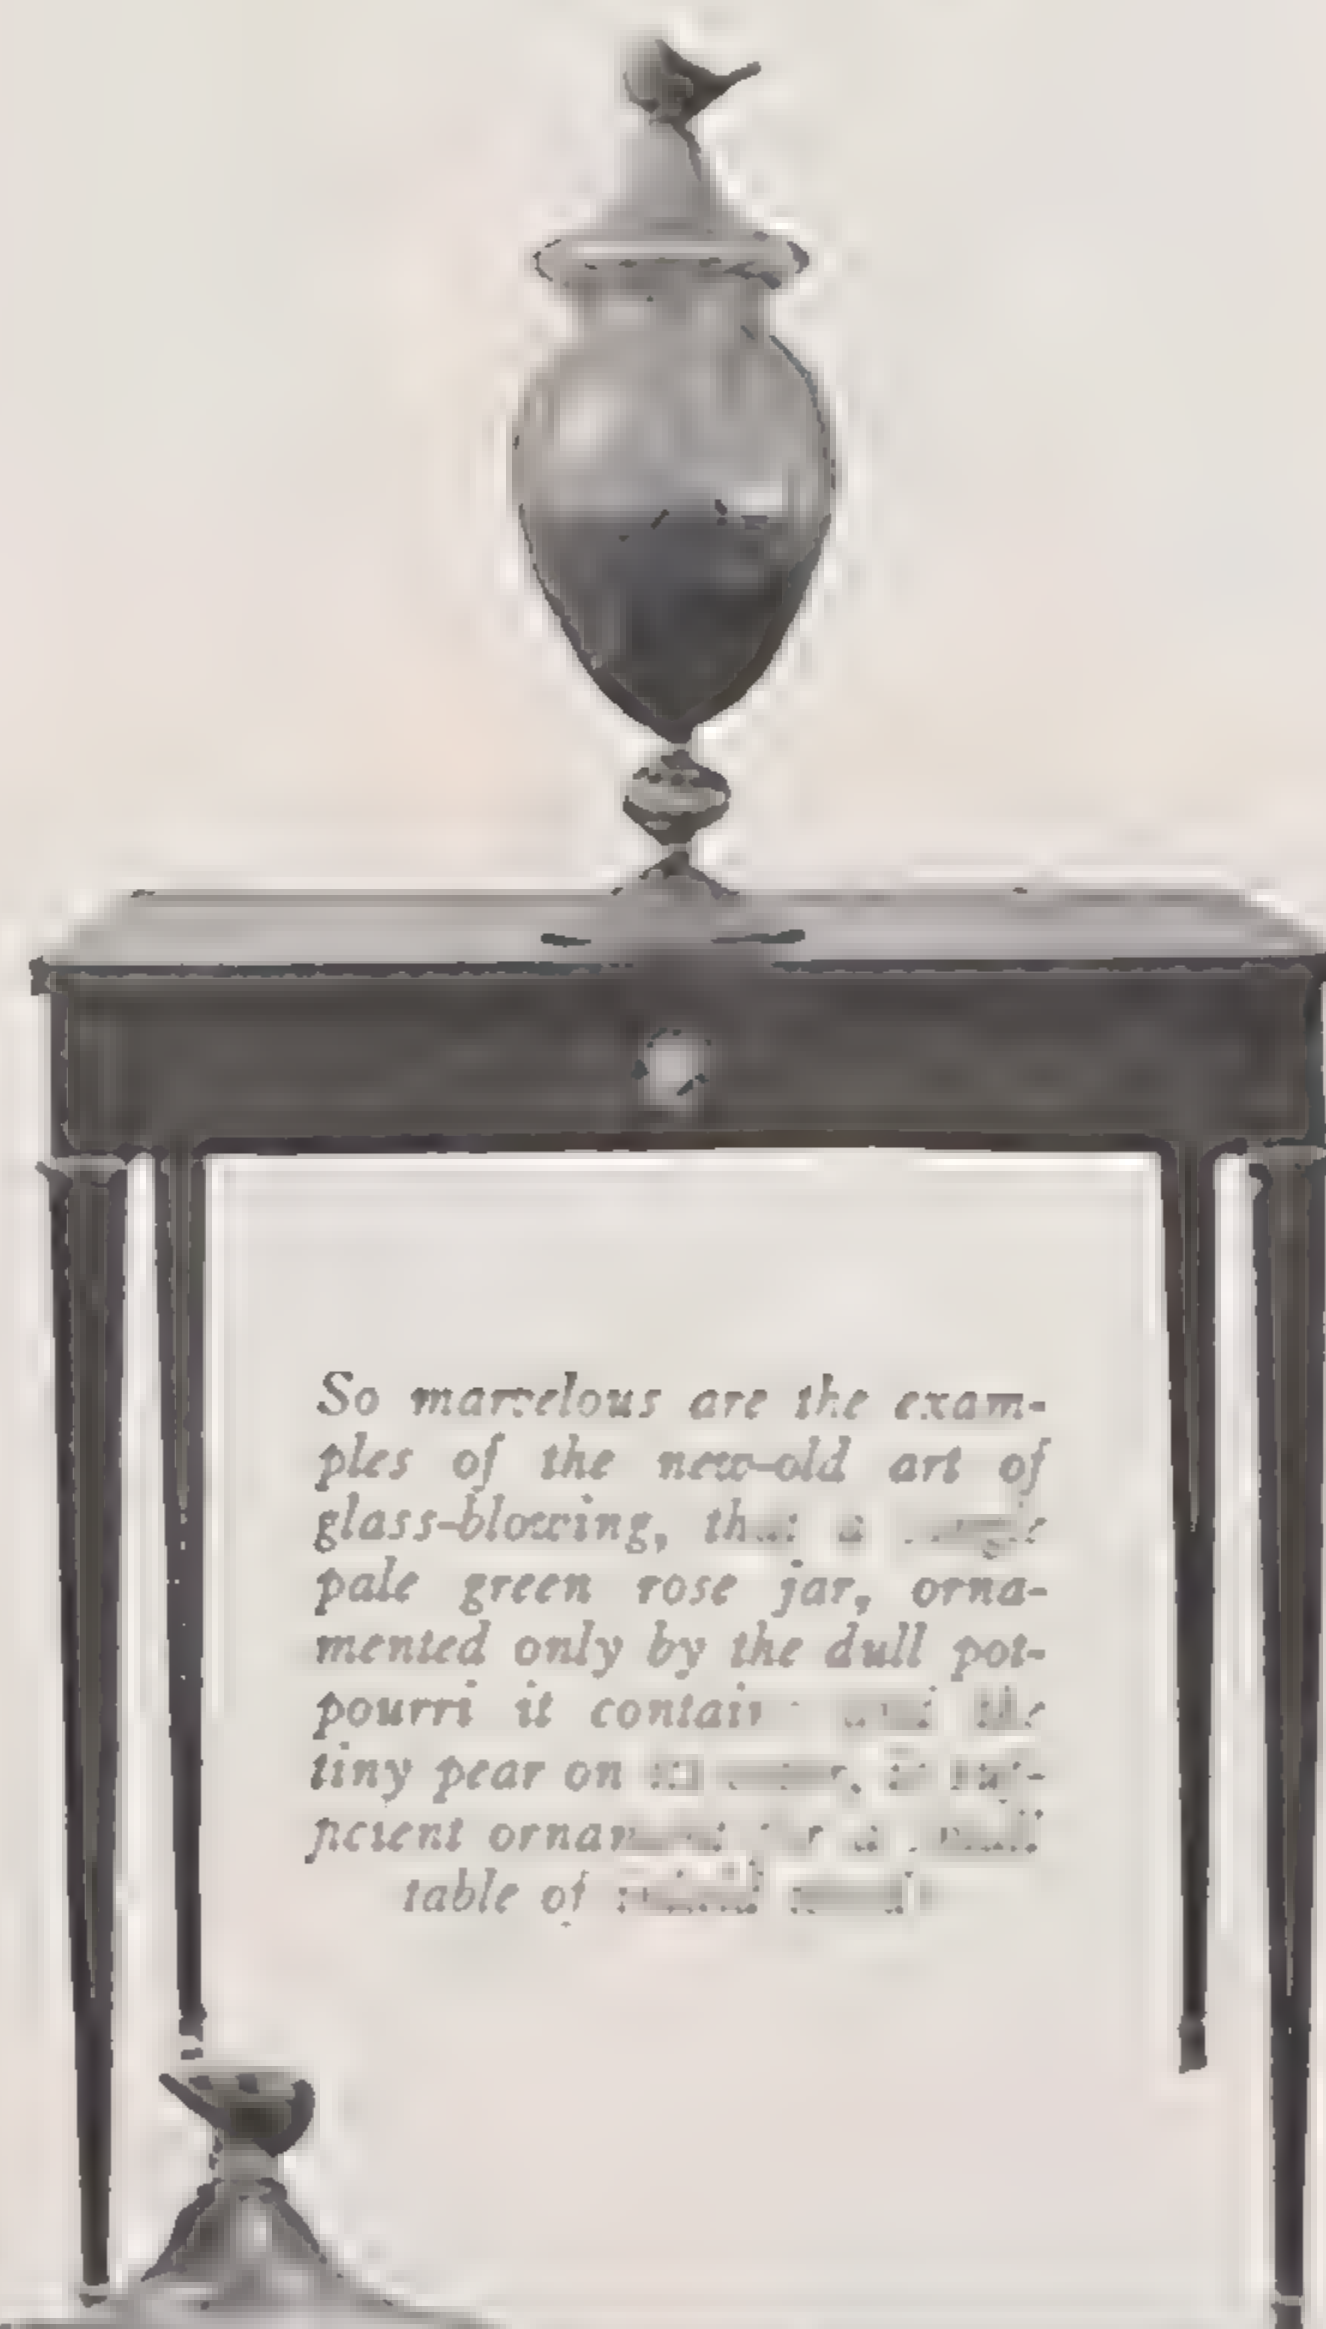 So marvelous are the exam-
ples of the new-old art of
glass-blowing, that a
pale green rose jar, orna-
mented only by the dull pot-
pourri it contains and the
tiny pear on its cover, is suf-
ficient ornament for a small
table of